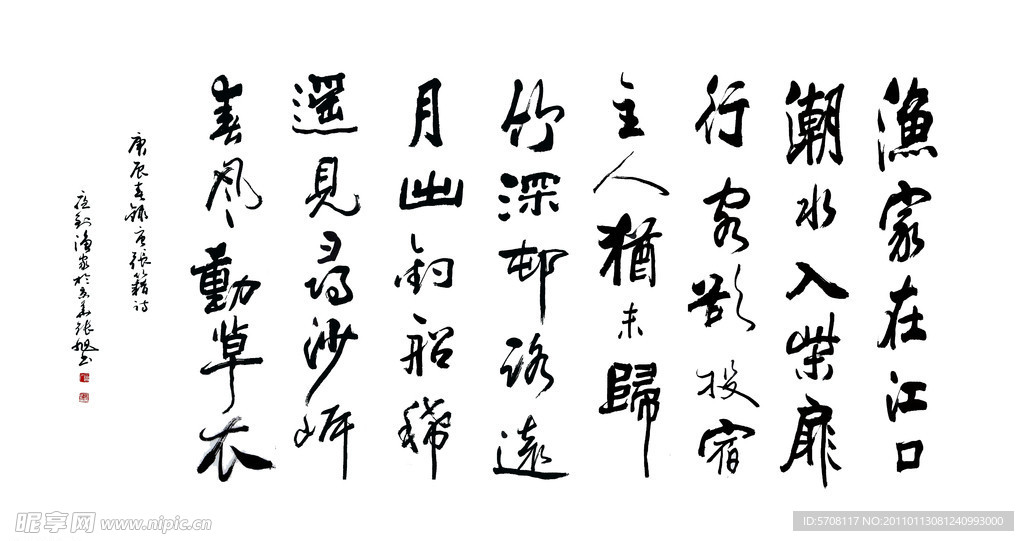 漁家在江口
潮水入柴扉
行客欲投宿
主人猶未歸
竹深邨路遠
月出釣船稀
遥見尋沙岸
春風動草衣
庚辰春録唐張籍诗
夜到漁家於京華張旭书
昵享网 www.nipic.cn
ID:5708117 NO:20110113081240993000